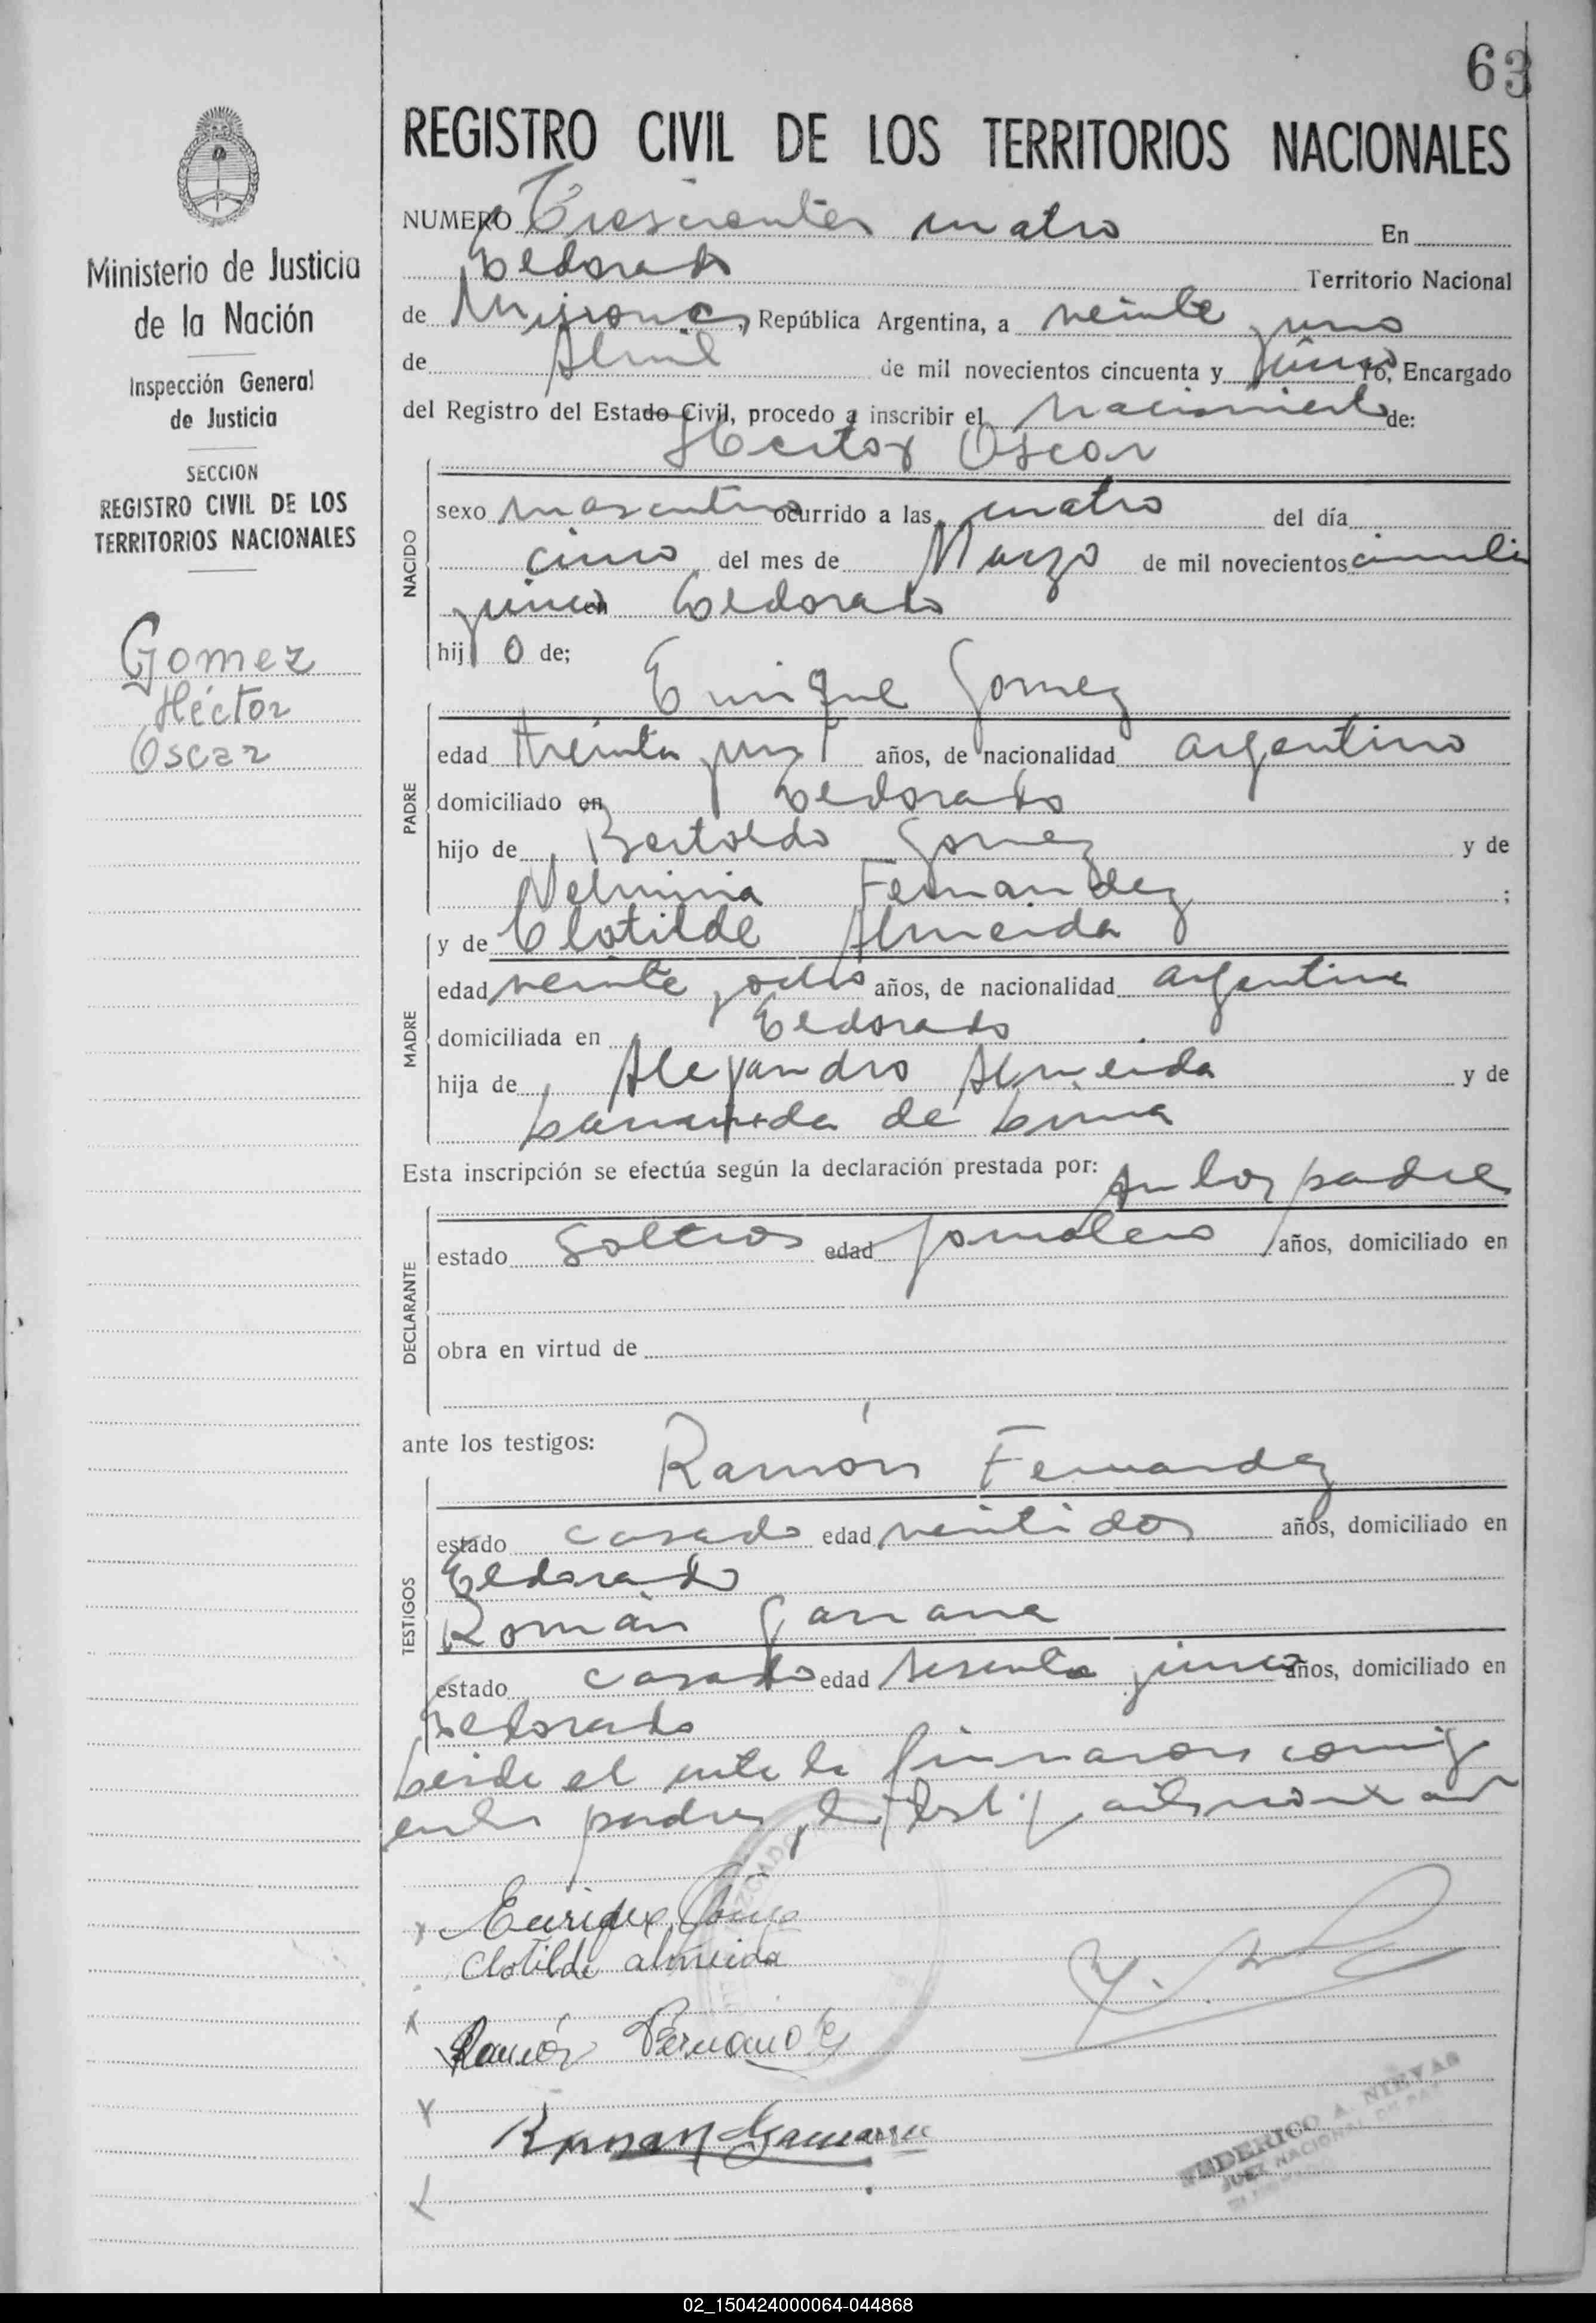 63
REGISTRO CIVIL DE LOS TERRITORIOS NACIONALES
Ministerio de Justicia
de la Nación
Inspección General
de Justicia
SECCION
REGISTRO CIVIL DE LOS
TERRITORIOS NACIONALES
Gomez
Héctor
Oscar
NUMERO Trescientos cuatro En
Eldorado Territorio Nacional
de Misiones, República Argentina, a veinte y uno
de Abril de mil novecientos cincuenta y cinco Yo, Encargado
del Registro del Estado Civil, procedo a inscribir el nacimiento de:
Hector Oscar
NACIDO
sexo masculino ocurrido a las cuatro del día
cinco del mes de Marzo de mil novecientos
y cinco en Eldorado
hij o de;
Enrique Gomez
PADRE
edad treinta y años, de nacionalidad argentino
domiciliado en Eldorado
hijo de Bertoldo Gomez y de
Fernandez ;
y de Clotilde Almeida
MADRE
edad veinte y ocho años, de nacionalidad argentina
domiciliada en Eldorado
hija de Alejandro Almeida y de
de
Esta inscripción se efectúa según la declaración prestada por: Ambos padre
DECLARANTE
estado Solteros edad jornalero años, domiciliado en
obra en virtud de
ante los testigos:
Ramón Fernandez
TESTIGOS
estado casado edad veintidos años, domiciliado en
Eldorado
Román
estado casado edad sesenta y cinco años, domiciliado en
Eldorado
el acta la firmaron conmigo
padres
Enrique Gomez
Clotilde almeida
Ramón Fernandez
Roman Gamarra
FEDERICO A.
JUEZ NACIONAL DE PAZ
02_150424000064-044868